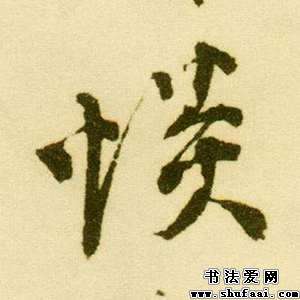 惔
书法爱网
www.shufaai.com